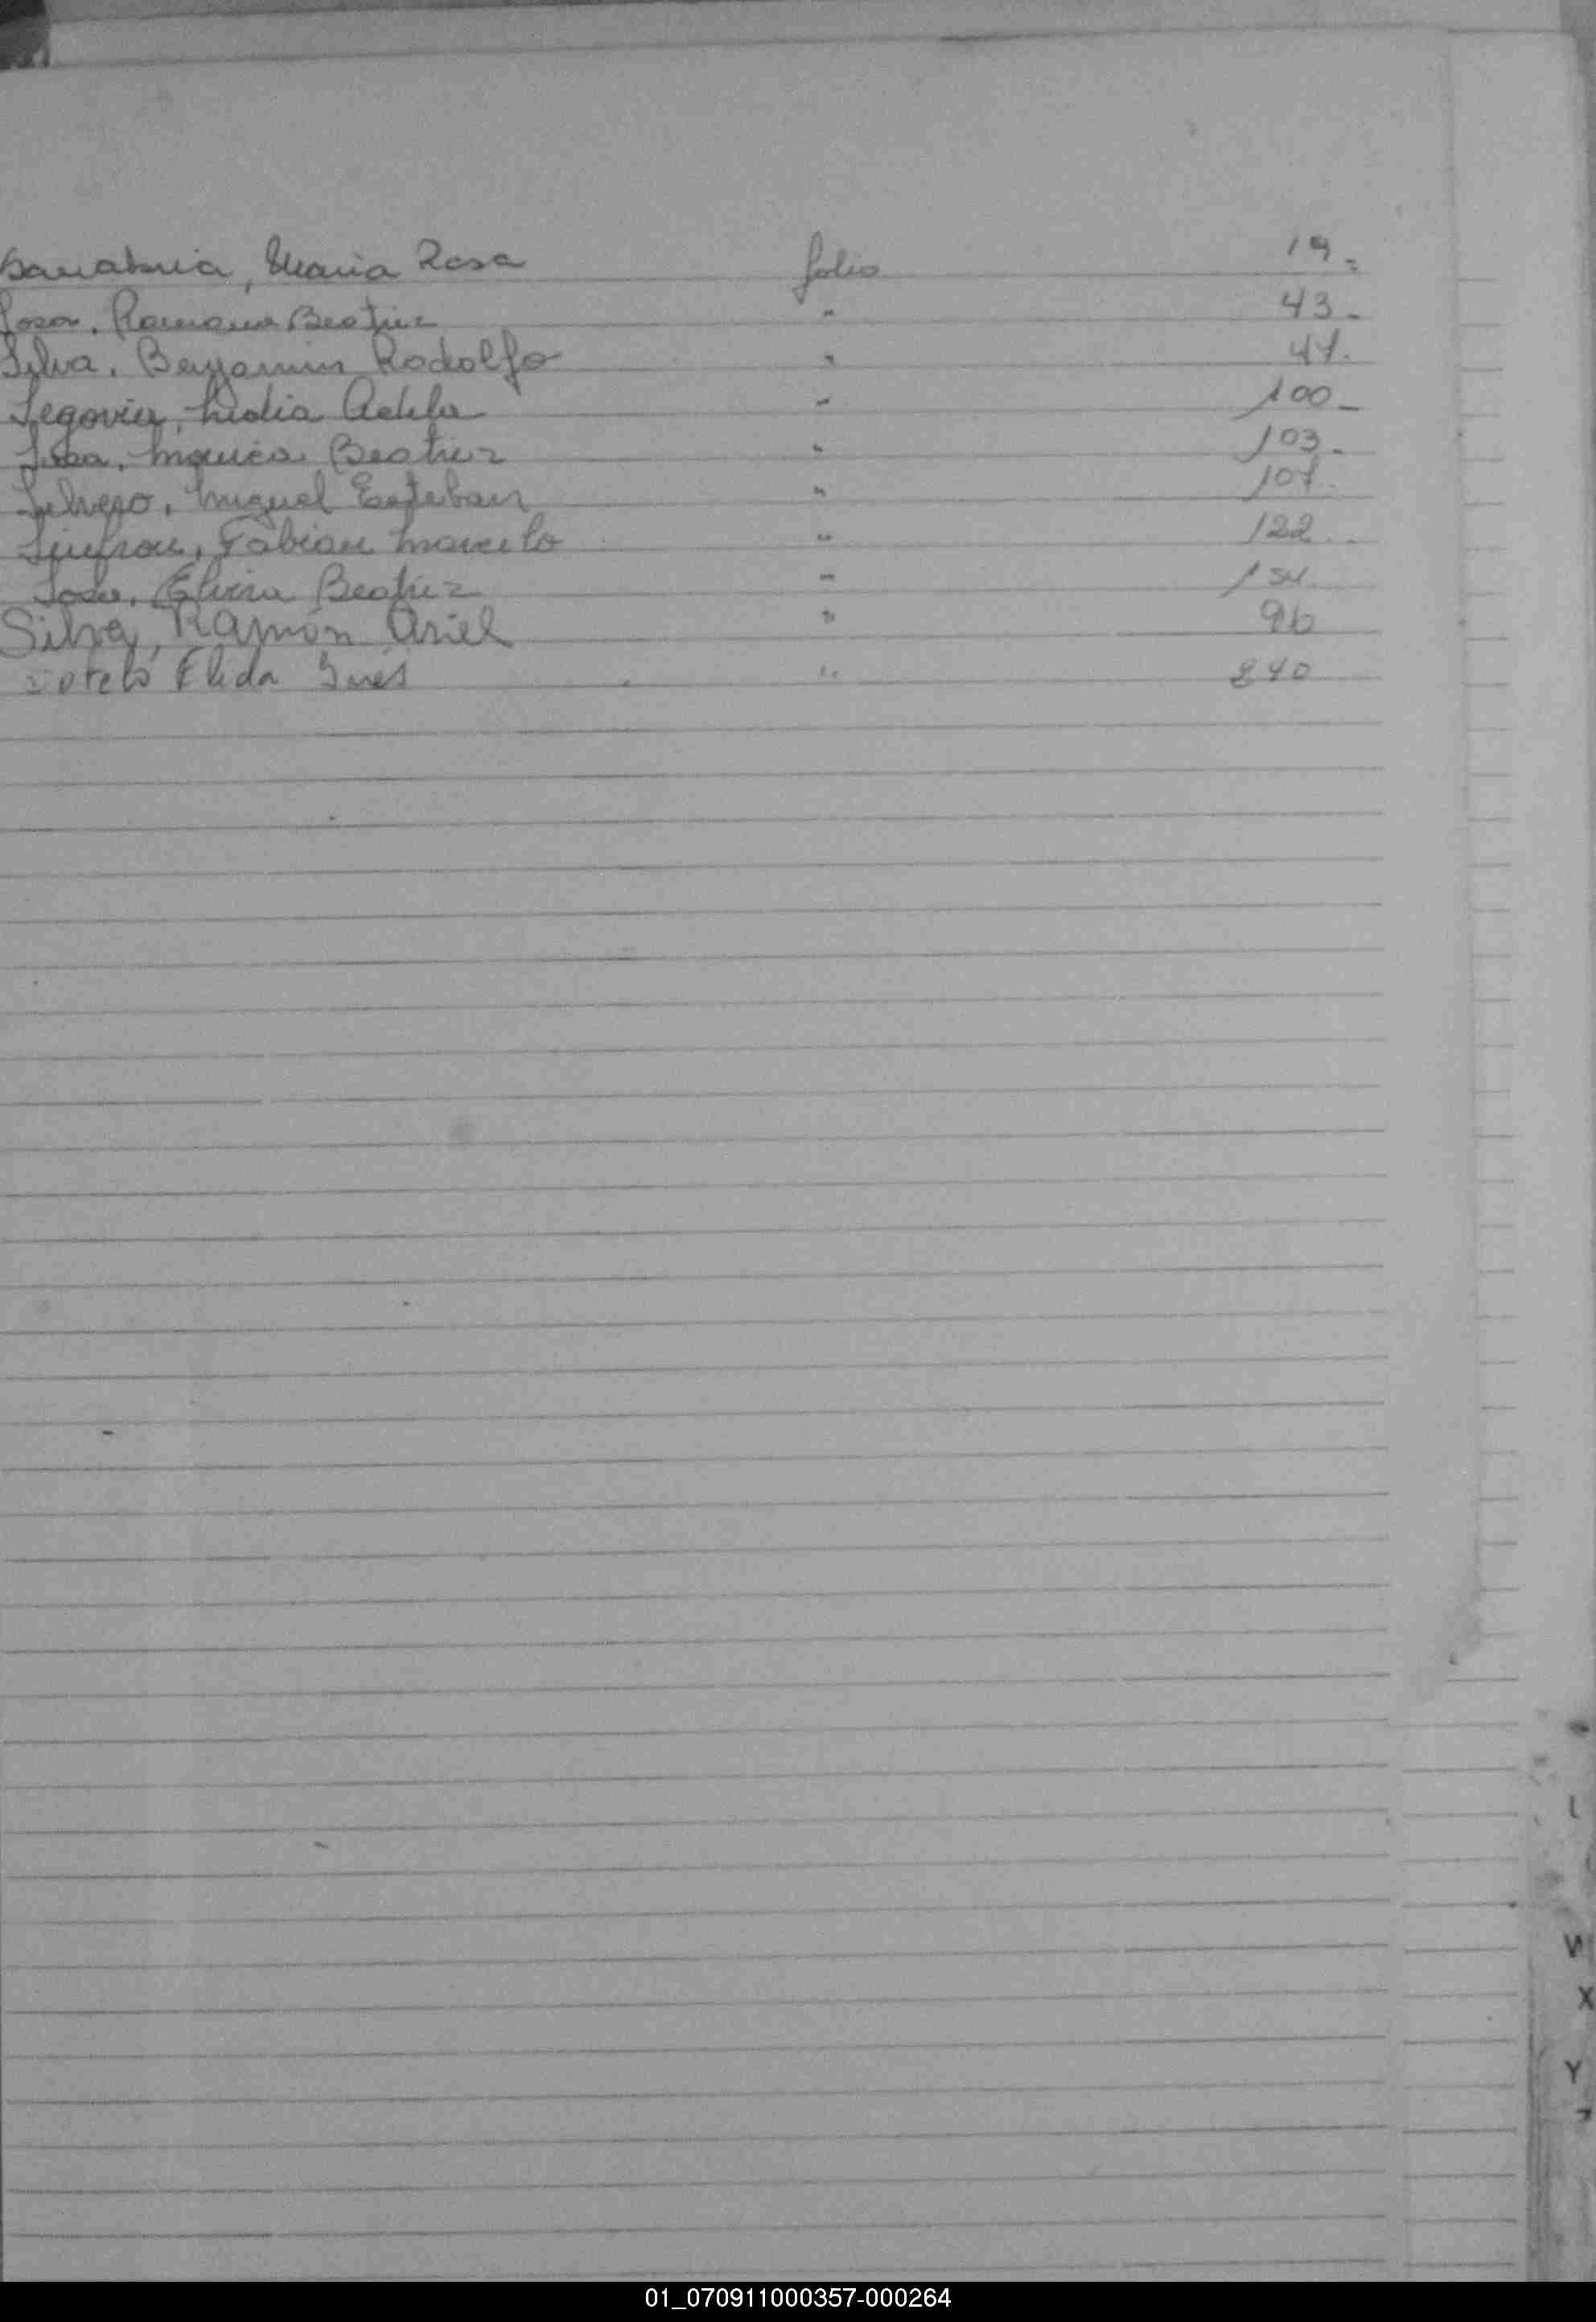 Sanabria, Maria Rosa folio 19.
Sosa, Ramona Beatriz " 43.
Silva, Benjamin Rodolfo " 47.
Segovia, Lidia Adela " 100.
Sosa, Monica Beatriz " 103.
Silvero, Miguel Esteban " 107.
Fabian Marcelo " 122.
Sosa, Elvira Beatriz " 154.
Silva, Ramón Ariel " 96
Sotelo Elida Inés " 240
W
X
Y
Z
01_070911000357-000264